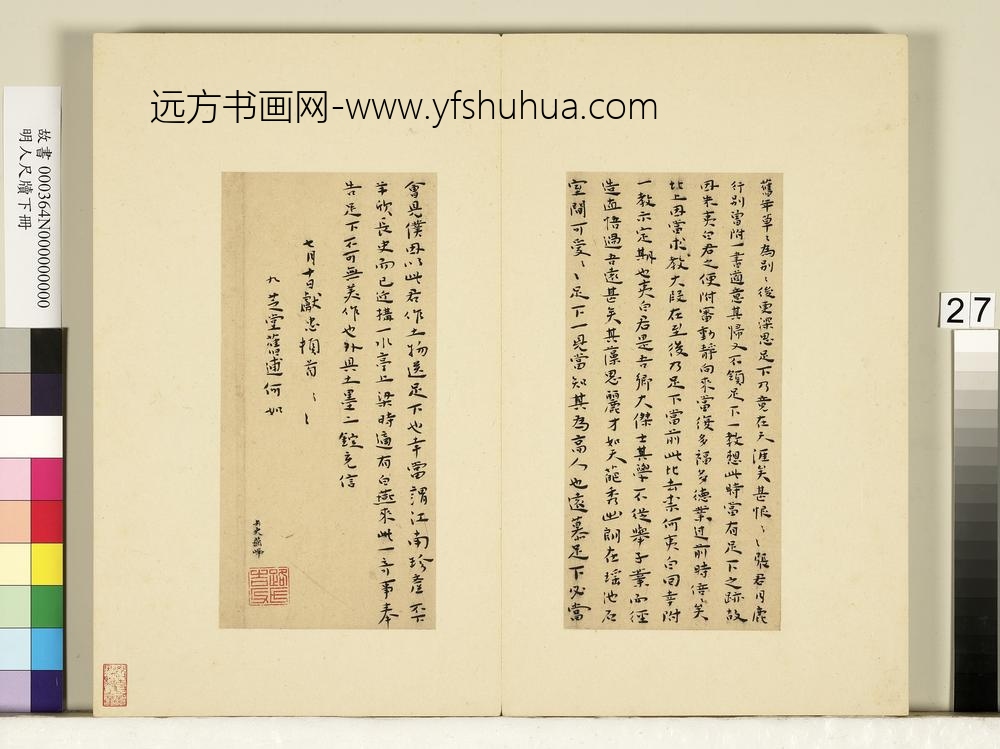 远方书画网-www.yfshuhua.com
故書 000364N000000000
明人尺牘下冊
27
舊年草草為別別後更深思足下乃竟在天涯矣甚恨甚恨張君月鹿
行別曾附一書適意其歸又不領足下一教想此時當有足下之跡故
因朱夷白君之便附審動靜向來當復多福多德業過前時倍倍矣
北上因當求教大段在至後乃足下當前此比去柰何夷白回幸附
一教示定期也夷白君是吾鄉大傑士其學不從舉子業而徑
造直悟過吾遠甚矣其藻思麗才如天葩秀出朗在瑤池石
室間可愛可愛足下一見當知其為高人也遠慕足下必當
會見僕因以此君作土物送足下也幸當謂江南珍產不下
羊欣長史而已近構一水亭上梁時適有白燕來此一奇事奉
告足下不可無美作也外具土墨二錠充信
七月十日獻忠頓首
九芝堂舊逋何如